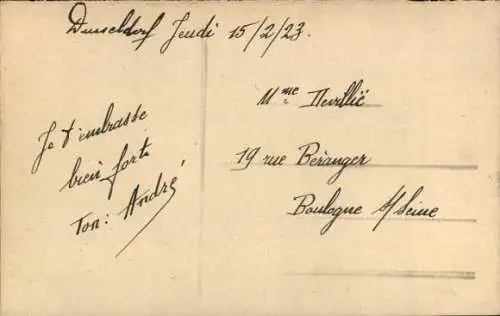 Dusseldorf Jeudi 15/2/23.
Je t'embrasse
bien fort
Ton: André
Mme
19 rue Béranger
Boulogne s/Seine